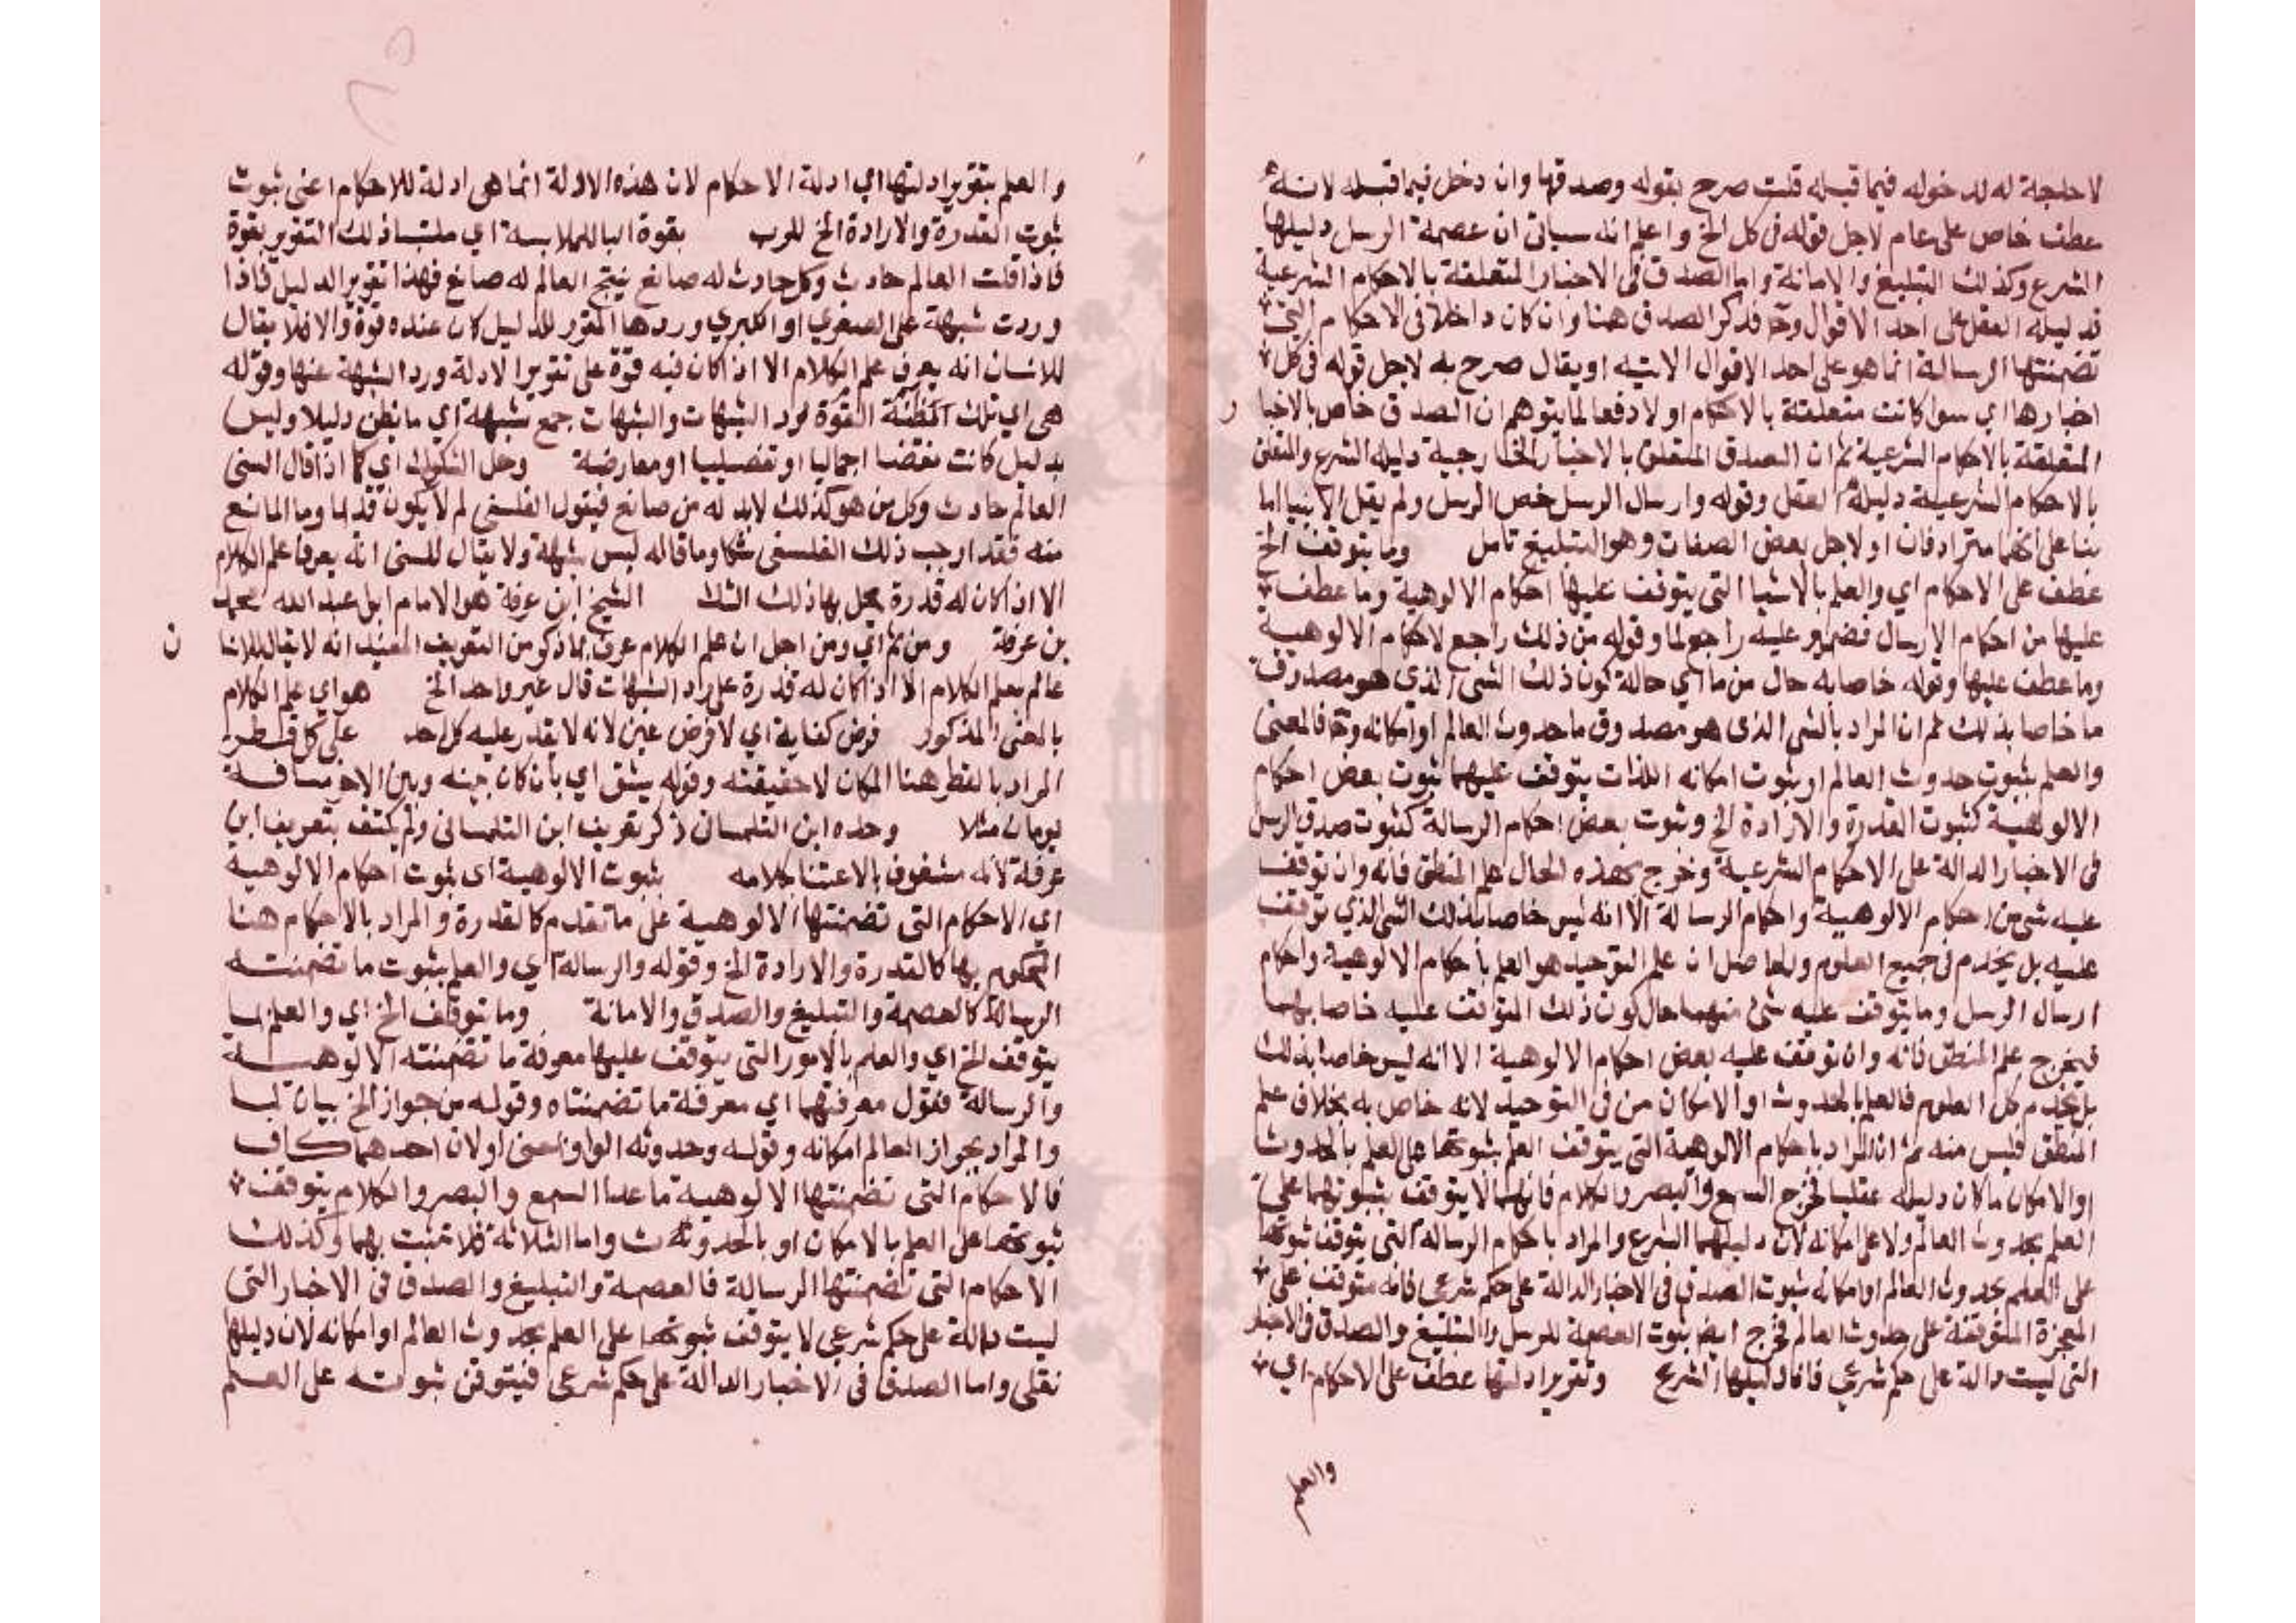 لا حاجة له لدخوله فيما قبله قلت صرح بقوله وصدقها وان دخل فيما قبله لانه
عطف خاص على عام لاجل قوله فى كل الخ واعلم انه سياتى ان عصمة الرسل دليلها
الشرع وكذلك التبليغ والامانة واما الصدق فى الاخبار المتعلقة بالاحكام الشرعية
فدليله العقل على احد الاقوال وح فذكر الصدق هنا وان كان داخلا فى الاحكام التى
تضمنتها الرسالة انما هو على احد الاقوال الاتيه او يقال صرح به لاجل قوله فى كل
اخبارها اي سوا كانت متعلقة بالاحكام اولا دفعا لما يتوهم ان الصدق خاص بالاخبار
المتعلقة بالاحكام الشرعية ثم ان الصدق المتعلق بالاخبار الخارجية دليله الشرع والمتعلق
بالاحكام الشرعية دليله العقل وقوله وارسال الرسل خص الرسل ولم يقل الانبيا اما
بنا على انهما مترادفان او لاجل بعض الصفات وهو التبليغ تامل وما يتوقف الخ
عطف على الاحكام اي والعلم بالاشيا التى يتوقف عليها احكام الالوهية وما عطف
عليها من احكام الارسال فضمير عليه راجع لما وقوله من ذلك راجع لاحكام الالوهية
وما عطف عليها وقوله خاصا به حال من ما اي حالة كون ذلك الشى الذى هو مصدوق
ما خاصا بذلك ثم ان المراد بالشى الذى هو مصدوق ما حدوث العالم او امكانه وح فالمعنى
والعلم بثبوت حدوث العالم او ثبوت امكانه اللذان يتوقف عليهما ثبوت بعض احكام
الالوهية كثبوت القدرة والارادة الخ وثبوت بعض احكام الرسالة كثبوت صدق الرسل
فى الاخبار الدالة على الاحكام الشرعية وخرج بهذه الحال علم المنطق فانه وان توقف
عليه شى من احكام الالوهية واحكام الرسالة الا انه ليس خاصا بذلك الشى الذي توقف
عليه بل يخدم فى جميع العلوم والحاصل ان علم التوحيد هو العلم باحكام الالوهية واحكام
ارسال الرسل وما يتوقف عليه شئ منهما حال كون ذلك المتوقف عليه خاصا بهما
فيخرج علم المنطق فانه وان توقف عليه بعض احكام الالوهية الا انه ليس خاصا بذلك
بل يخدم كل العلوم فالعلم بالحدوث او الامكان من فى التوحيد لانه خاص به بخلاف علم
المنطق فليس منه ثم ان المراد باحكام الالوهية التى يتوقف العلم بثبوتها على العلم بالحدوث
او الامكان ما كان دليله عقليا فخرج السمع والبصر والكلام فانها لا يتوقف ثبوتها على
العلم بحدوث العالم ولا على امكانه لان دليلهما الشرع والمراد باحكام الرسالة التى يتوقف ثبوتها
على العلم بحدوث العالم او امكانه ثبوت الصدق فى الاخبار الدالة على حكم شرعى فانه متوقف على
المعجزة المتوقفة على حدوث العالم فخرج ايض ثبوت العصمة للرسل والتبليغ والصدق فى الاخبار
التى ليست دالة على حكم شرعي فانما دليلها الشرع وتقرير ادلتها عطف على الاحكام اي
والعلم
والعلم بتقرير ادلتها اي ادلة الاحكام لان هذه الادلة انما هى ادلة للاحكام اعنى ثبوت
ثبوت القدرة والارادة الخ للرب بقوة البا للملابسة اي ملتبسا ذلك التقرير بقوة
فاذا قلت العالم حادث وكل حادث له صانع ينتج العالم له صانع فهذا تقرير الدليل فاذا
وردت شبهة على الصغري او الكبري وردها المقرر للدليل كان عنده قوة والا فلا يقال
للانسان انه يعرف علم الكلام الا اذا كان فيه قوة على تقرير الادلة ورد الشبهة عنها وقوله
هى اي تلك القوة لرد الشبهات والشبهات جمع شبهة اي ما يظن دليلا وليس
بدليل كانت نقضا اجماليا او تفصيليا او معارضة وحل الشكوك اي كما اذا قال السنى
العالم حادث وكل من هو كذلك لابد له من صانع فيقول الفلسفى لم لا يكون قديما وما المانع
منه فقد اوجب ذلك الفلسفى شكا وما قاله ليس شبهة ولا يقال للسنى انه يعرف علم الكلام
الا اذا كان له قدرة يحل بها ذلك الشك الشيخ ابن عرفة هو الامام ابى عبد الله محمد
بن عرفة ومن ثم اي ومن اجل ان علم الكلام عرف بما ذكر من التعريف المفيد انه لا يقال للانسان
عالم بعلم الكلام الا اذا كان له قدرة على رد الشبهات قال غير واحد الخ هو اي علم الكلام
بالمعنى المذكور فرض كفاية اي لا فرض عين لانه لا يقدر عليه كل احد على كل قطر
المراد بالقطر هنا المكان لا حقيقته وقوله يشق اي بان كان بينه وبين الاخر مسافة
يومان مثلا وحده ابن التلمسان ذكر تعريف ابن التلمسانى ولم يكتف بتعريف ابن
عرفة لانه مشغوف بالاعتنا بكلامه بثبوت الالوهية اى ثبوت احكام الالوهية
اي الاحكام التى تضمنتها الالوهية على ما تقدم كالقدرة والمراد بالاحكام هنا
المحكوم بها كالقدرة والارادة الخ وقوله والرسالة اي والعلم بثبوت ما تضمنته
الرسالة كالعصمة والتبليغ والصدق والامانة وما توقف الخ اي والعلم بما
يتوقف الخ اي والعلم بالامور التى يتوقف عليها معرفة ما تضمنته الالوهية
والرسالة فقول معرفتهما اي معرفة ما تضمنتاه وقوله من جواز الخ بيان لما
والمراد بجواز العالم امكانه وقوله وحدوثه الواو بمعنى او لان احدهما كاف
فالاحكام التى تضمنتها الالوهية ما عدا السمع والبصر والكلام يتوقف
ثبوتها على العلم بالامكان او بالحدوث واما الثلاثة فلا تثبت بهما وكذلك
الاحكام التى تضمنتها الرسالة فالعصمة والتبليغ والصدق فى الاخبار التى
ليست دالة على حكم شرعى لا يتوقف ثبوتها على العلم بحدوث العالم او امكانه لان دليلها
نقلى واما الصدق فى الاخبار الدالة على حكم شرعى فيتوقف ثبوته على العلم